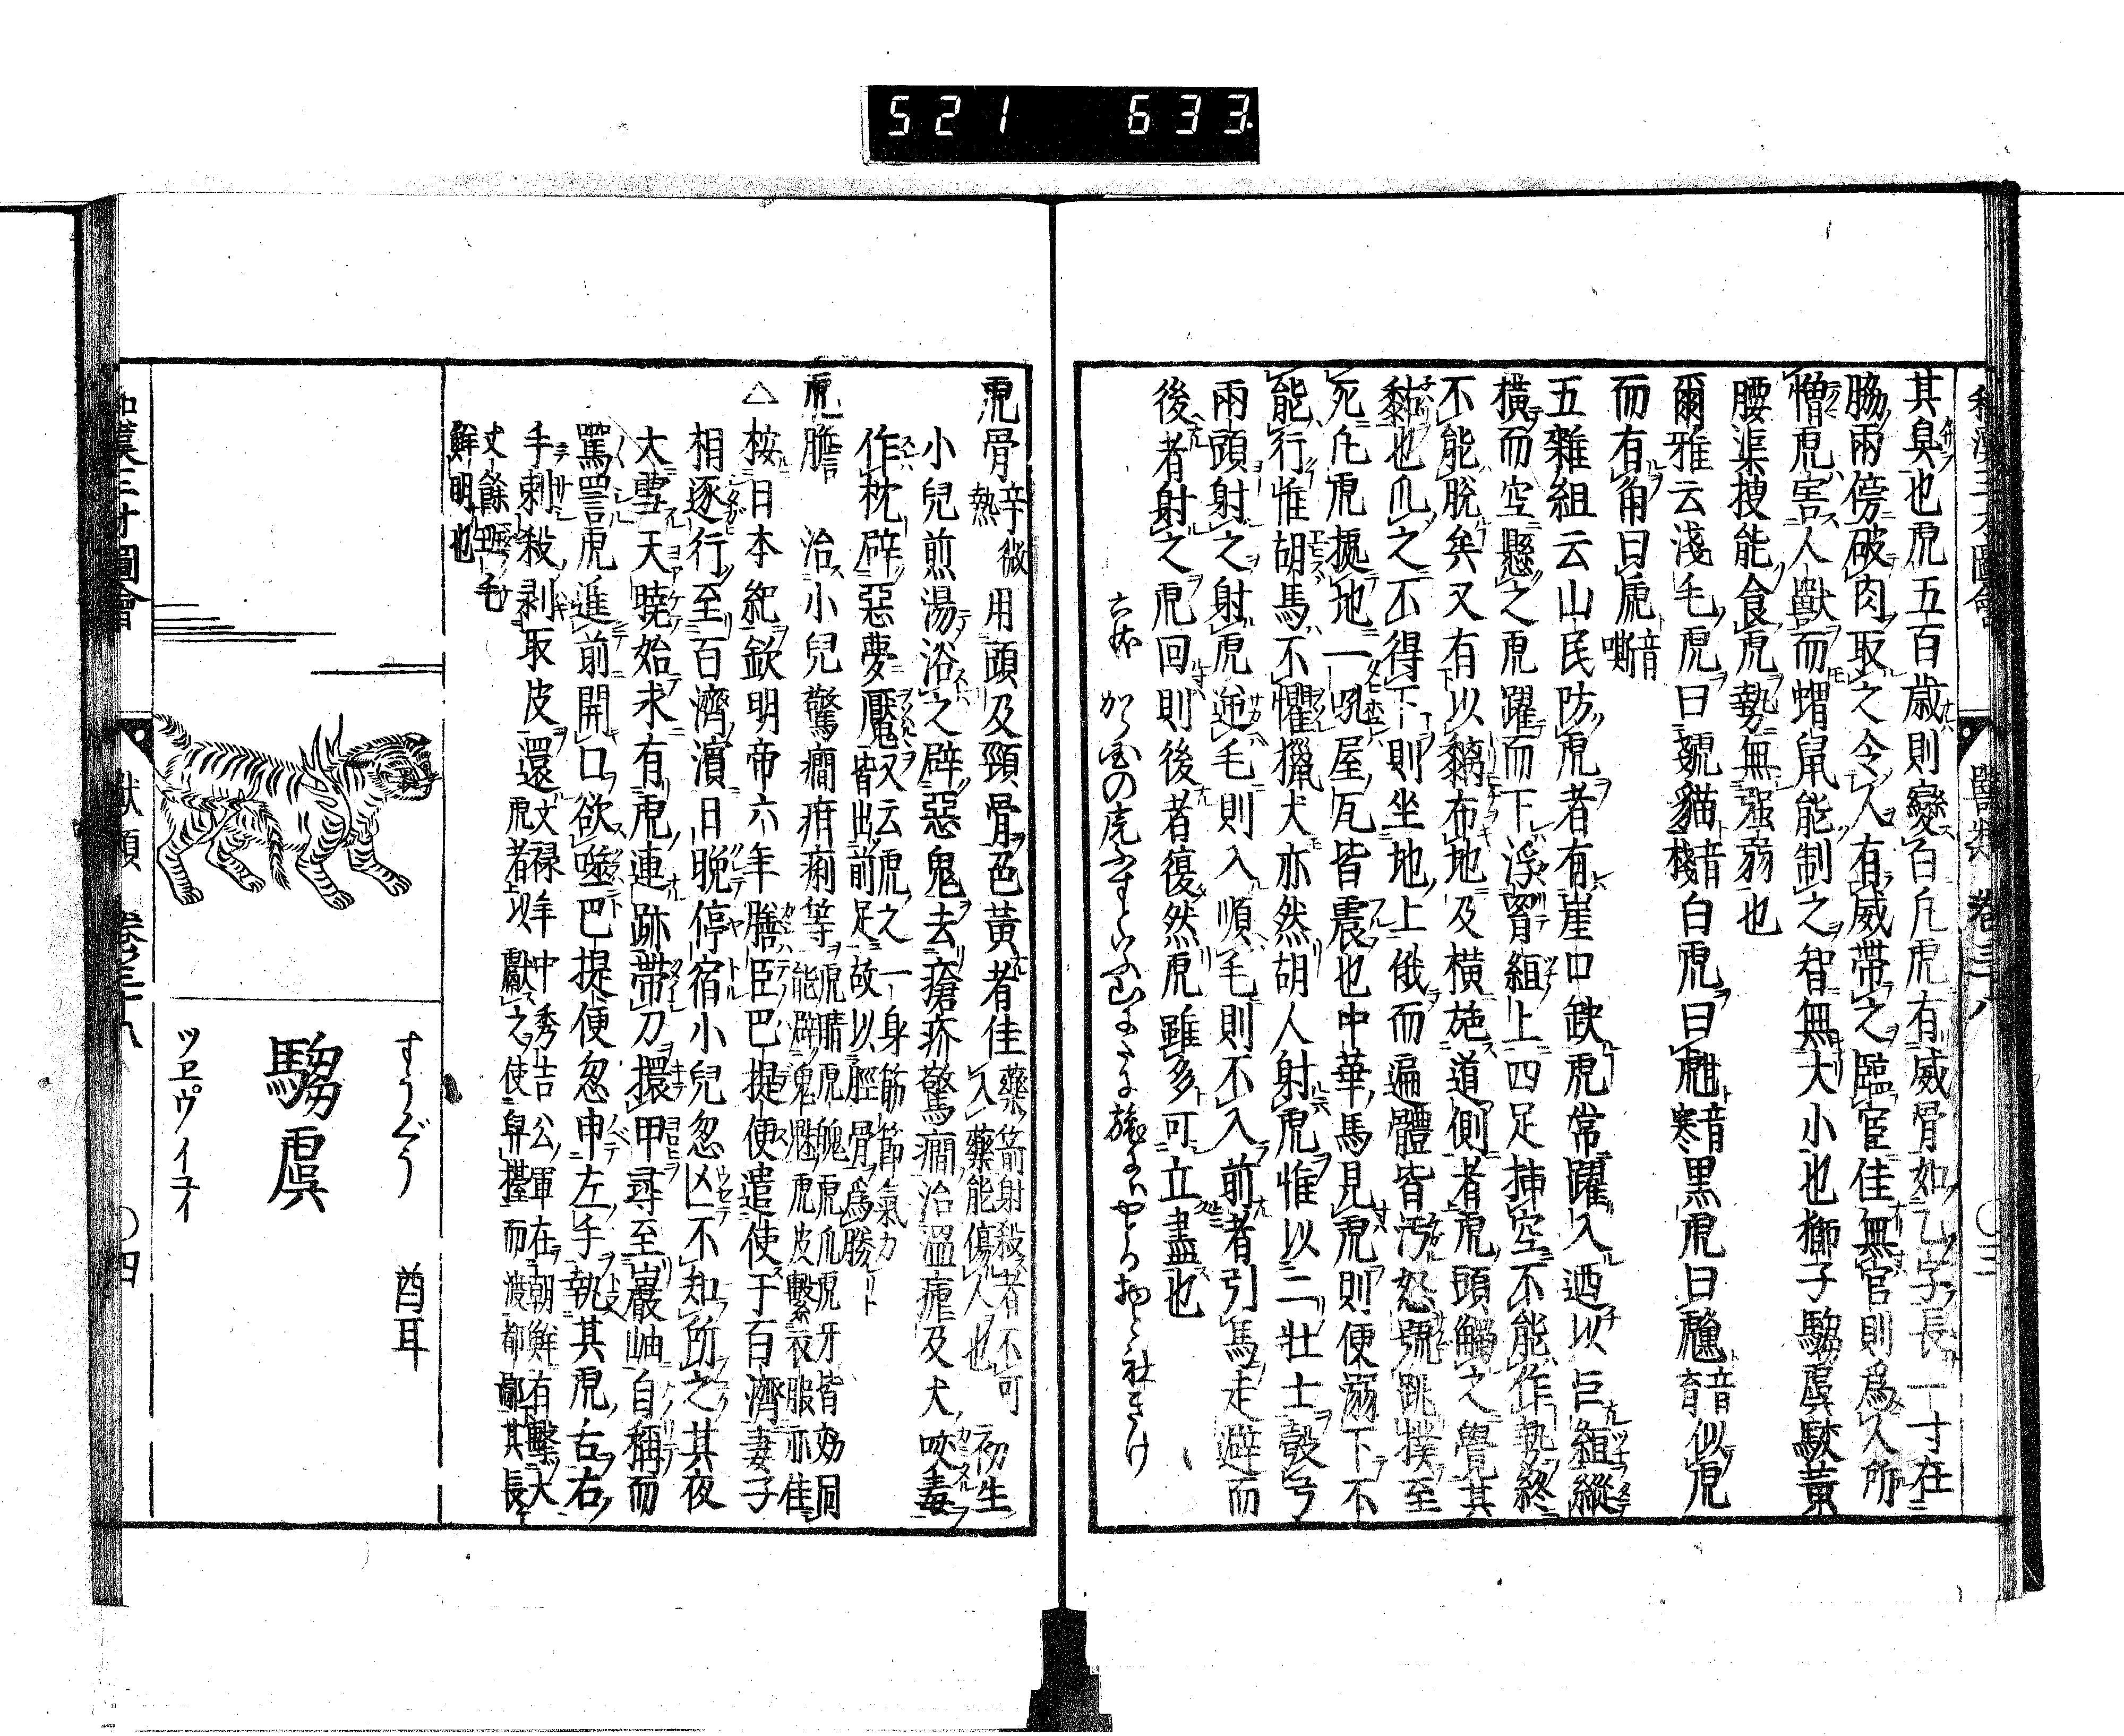 521 633
和漢三才圖會 獸類 卷三十八 〇三
其臭也虎五百歳則變白凡虎有威骨如乙字長一寸在
脇兩傍破肉取之令人有威帶之臨官佳無官則爲人所
憎虎害人獸而蝟鼠能制之智無大小也獅子騶虞駮黃
腰渠搜能食虎勢無強弱也
爾雅云淺毛虎曰虦貓音棧白虎曰甝音寒黒虎曰虪音育似虎
而有角曰虒音嘶
五雜組云山民防虎者有崖口缺虎常躍入廼以巨組縱
橫而空懸之虎躍而下浮胷組上四足挿空不能作勢終
不能脫矣又有以黐布地及橫施道側者虎頭觸之覺其
黏也爪之不得下則坐地上俄而遍體皆汚怒號跳撲至
死凡虎據地一吼屋瓦皆震也中華馬見虎則便溺下不
能行惟胡馬不懼獵犬亦然胡人射虎惟以二壯士彀弓
兩頭射之射虎逆毛則入順毛則不入前者引馬走避而
後者射之虎回則後者復然虎雖多可立盡也
六帖 から国の虎ふすといふ山
虎骨 辛微熱 用頭及頸骨色黃者佳 藥箭射殺者不可入藥能傷人也 初生
小兒煎湯浴之辟惡鬼去瘡疥驚癇治溫瘧及犬咬毒
作枕辟惡夢魘 又云虎之一身筋節氣力皆出前足故以脛骨爲勝
虎膽 治小兒驚癇疳痢等 虎睛虎魄虎爪虎牙皆効同能辟鬼魅虎皮繫衣服亦佳
△桉日本紀欽明帝六年膳臣巴提便遣使于百濟妻子
相逐行至百濟濵日晩停宿小兒忽亡不知所之其夜
大雪天曉始求有虎連跡帶刀擐甲尋至巖岫自稱而
罵詈虎進前開口欲噬巴提便忽申左手執其虎舌右
手刺殺剥取皮還 文禄年中秀吉公軍在朝鮮有繫大虎者以獻之使舁擡而渡都鄙其長
丈餘斑毛鮮明也
すうぐう 酋耳
騶虞
ツヱウイユイ
和漢三才圖會 獸類 卷三十八 〇四